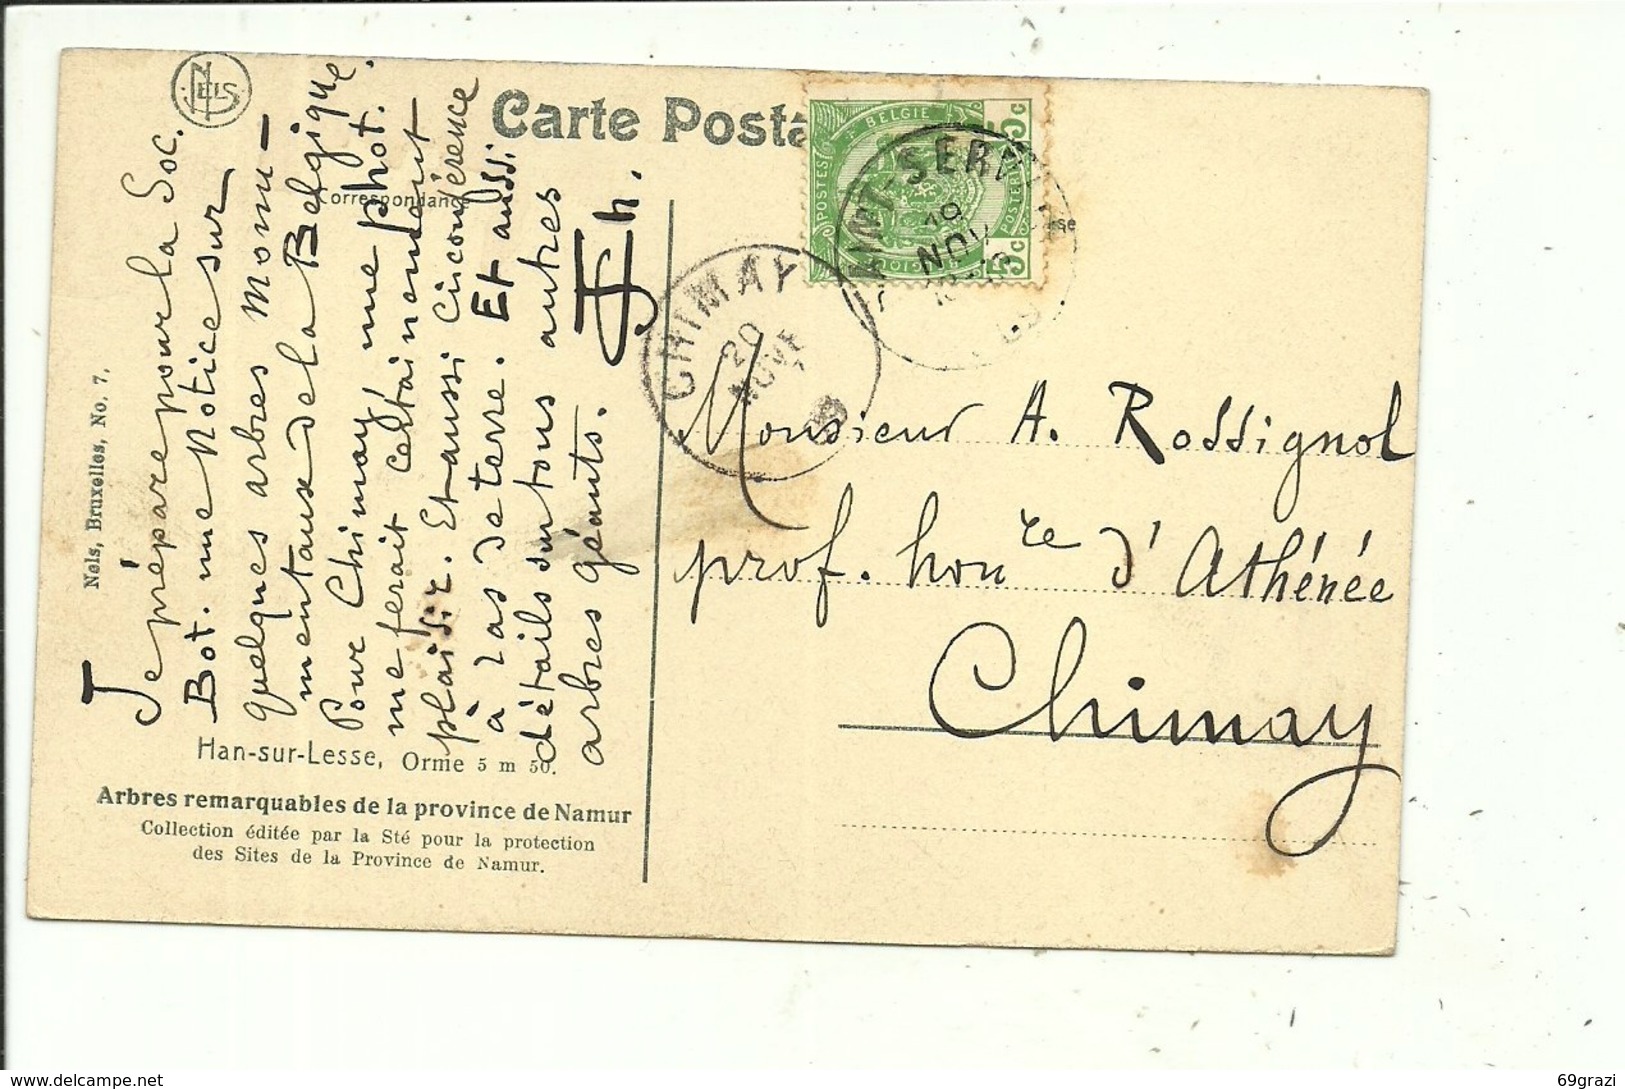 NELS
Carte Posta
Correspondance
Je prépare pour la Soc.
Bot. une Notice sur
quelques arbres monu-
mentaux de la Belgique.
Pour Chimay, une phot.
me ferait certainement
plaisir. Et aussi circonférence
à ras de terre. Et aussi
détails sur tous autres
arbres géants.
Nels, Bruxelles, No. 7.
BELGIE
POSTES
POSTERIJEN
5c
5c
19
NOV
CHIMAY
20
NOVE
Monsieur A. Rossignol
prof. honre d'Athénée
Chimay
Han-sur-Lesse, Orme 5 m 50.
Arbres remarquables de la province de Namur
Collection éditée par la Sté pour la protection
des Sites de la Province de Namur.
69grazi